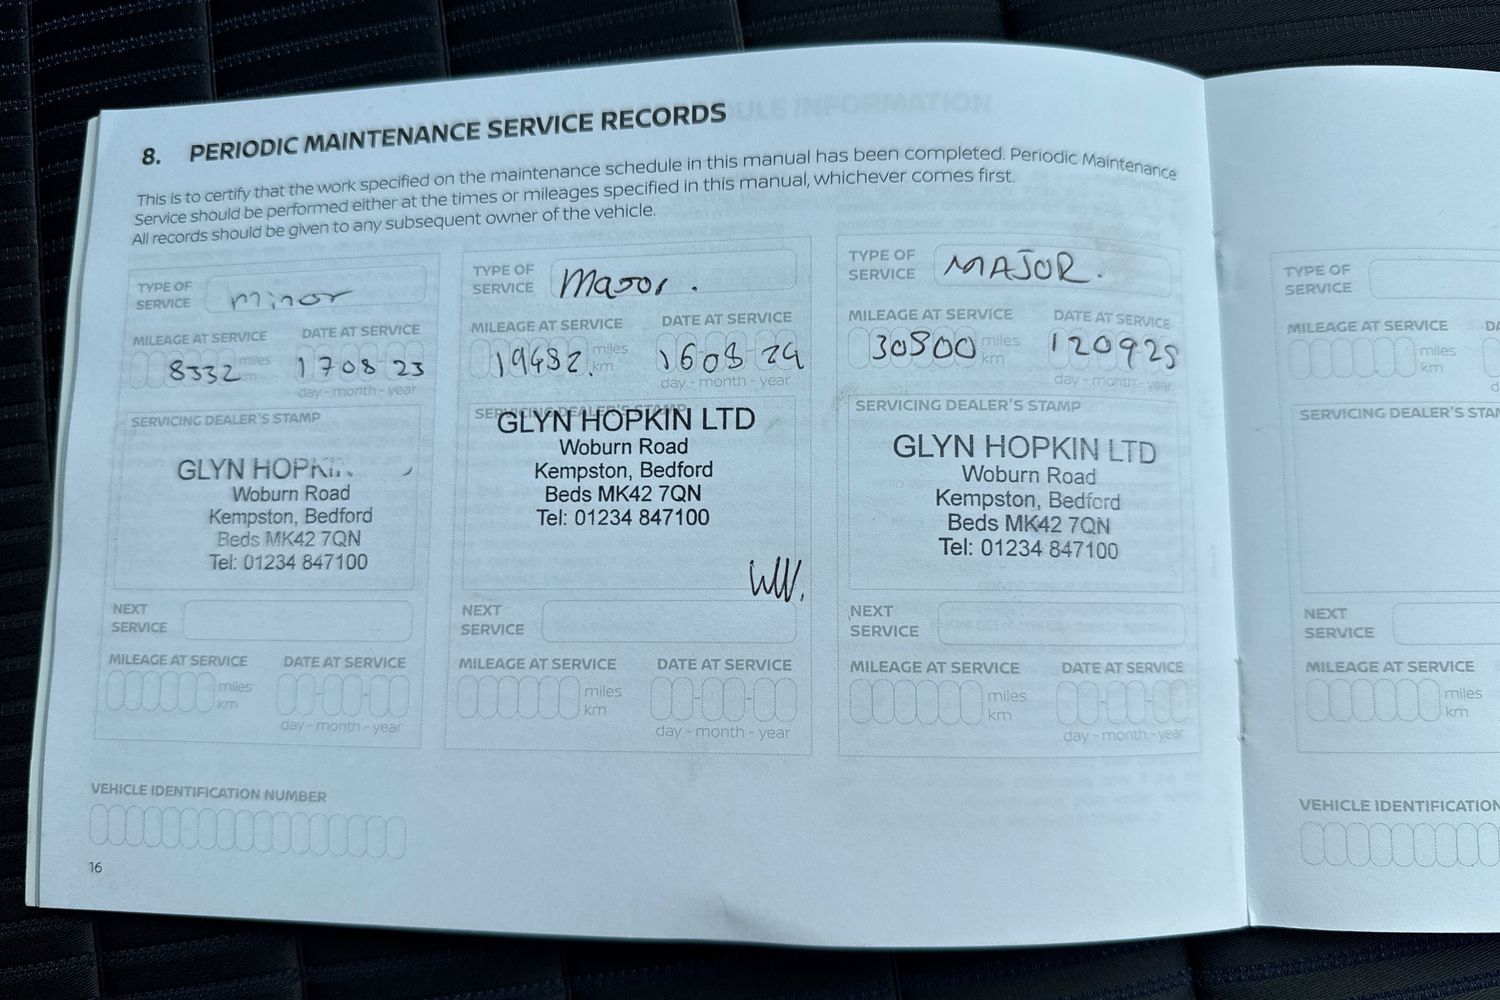 8. PERIODIC MAINTENANCE SERVICE RECORDS
This is to certify that the work specified on the maintenance schedule in this manual has been completed. Periodic Maintenance
Service should be performed either at the times or mileages specified in this manual, whichever comes first.
All records should be given to any subsequent owner of the vehicle.
TYPE OF
SERVICE minor
MILEAGE AT SERVICE DATE AT SERVICE
8332 miles km 17 08 23
day - month - year
SERVICING DEALER'S STAMP
GLYN HOPKIN
Woburn Road
Kempston, Bedford
Beds MK42 7QN
Tel: 01234 847100
NEXT
SERVICE
MILEAGE AT SERVICE DATE AT SERVICE
miles
km
day - month - year
TYPE OF
SERVICE Major.
MILEAGE AT SERVICE DATE AT SERVICE
19482. miles km 16 08 24
day - month - year
SERVICING DEALER'S STAMP
GLYN HOPKIN LTD
Woburn Road
Kempston, Bedford
Beds MK42 7QN
Tel: 01234 847100
NEXT
SERVICE
MILEAGE AT SERVICE DATE AT SERVICE
miles
km
day - month - year
TYPE OF
SERVICE MAJOR.
MILEAGE AT SERVICE DATE AT SERVICE
miles km 12 09 25
day - month - year
SERVICING DEALER'S STAMP
GLYN HOPKIN LTD
Woburn Road
Kempston, Bedford
Beds MK42 7QN
Tel: 01234 847100
NEXT
SERVICE
MILEAGE AT SERVICE DATE AT SERVICE
miles
km
day - month - year
VEHICLE IDENTIFICATION NUMBER
16
TYPE OF
SERVICE
MILEAGE AT SERVICE
miles
km
SERVICING DEALER'S
NEXT
SERVICE
MILEAGE AT SERVICE
miles
km
VEHICLE IDENTIFICATION